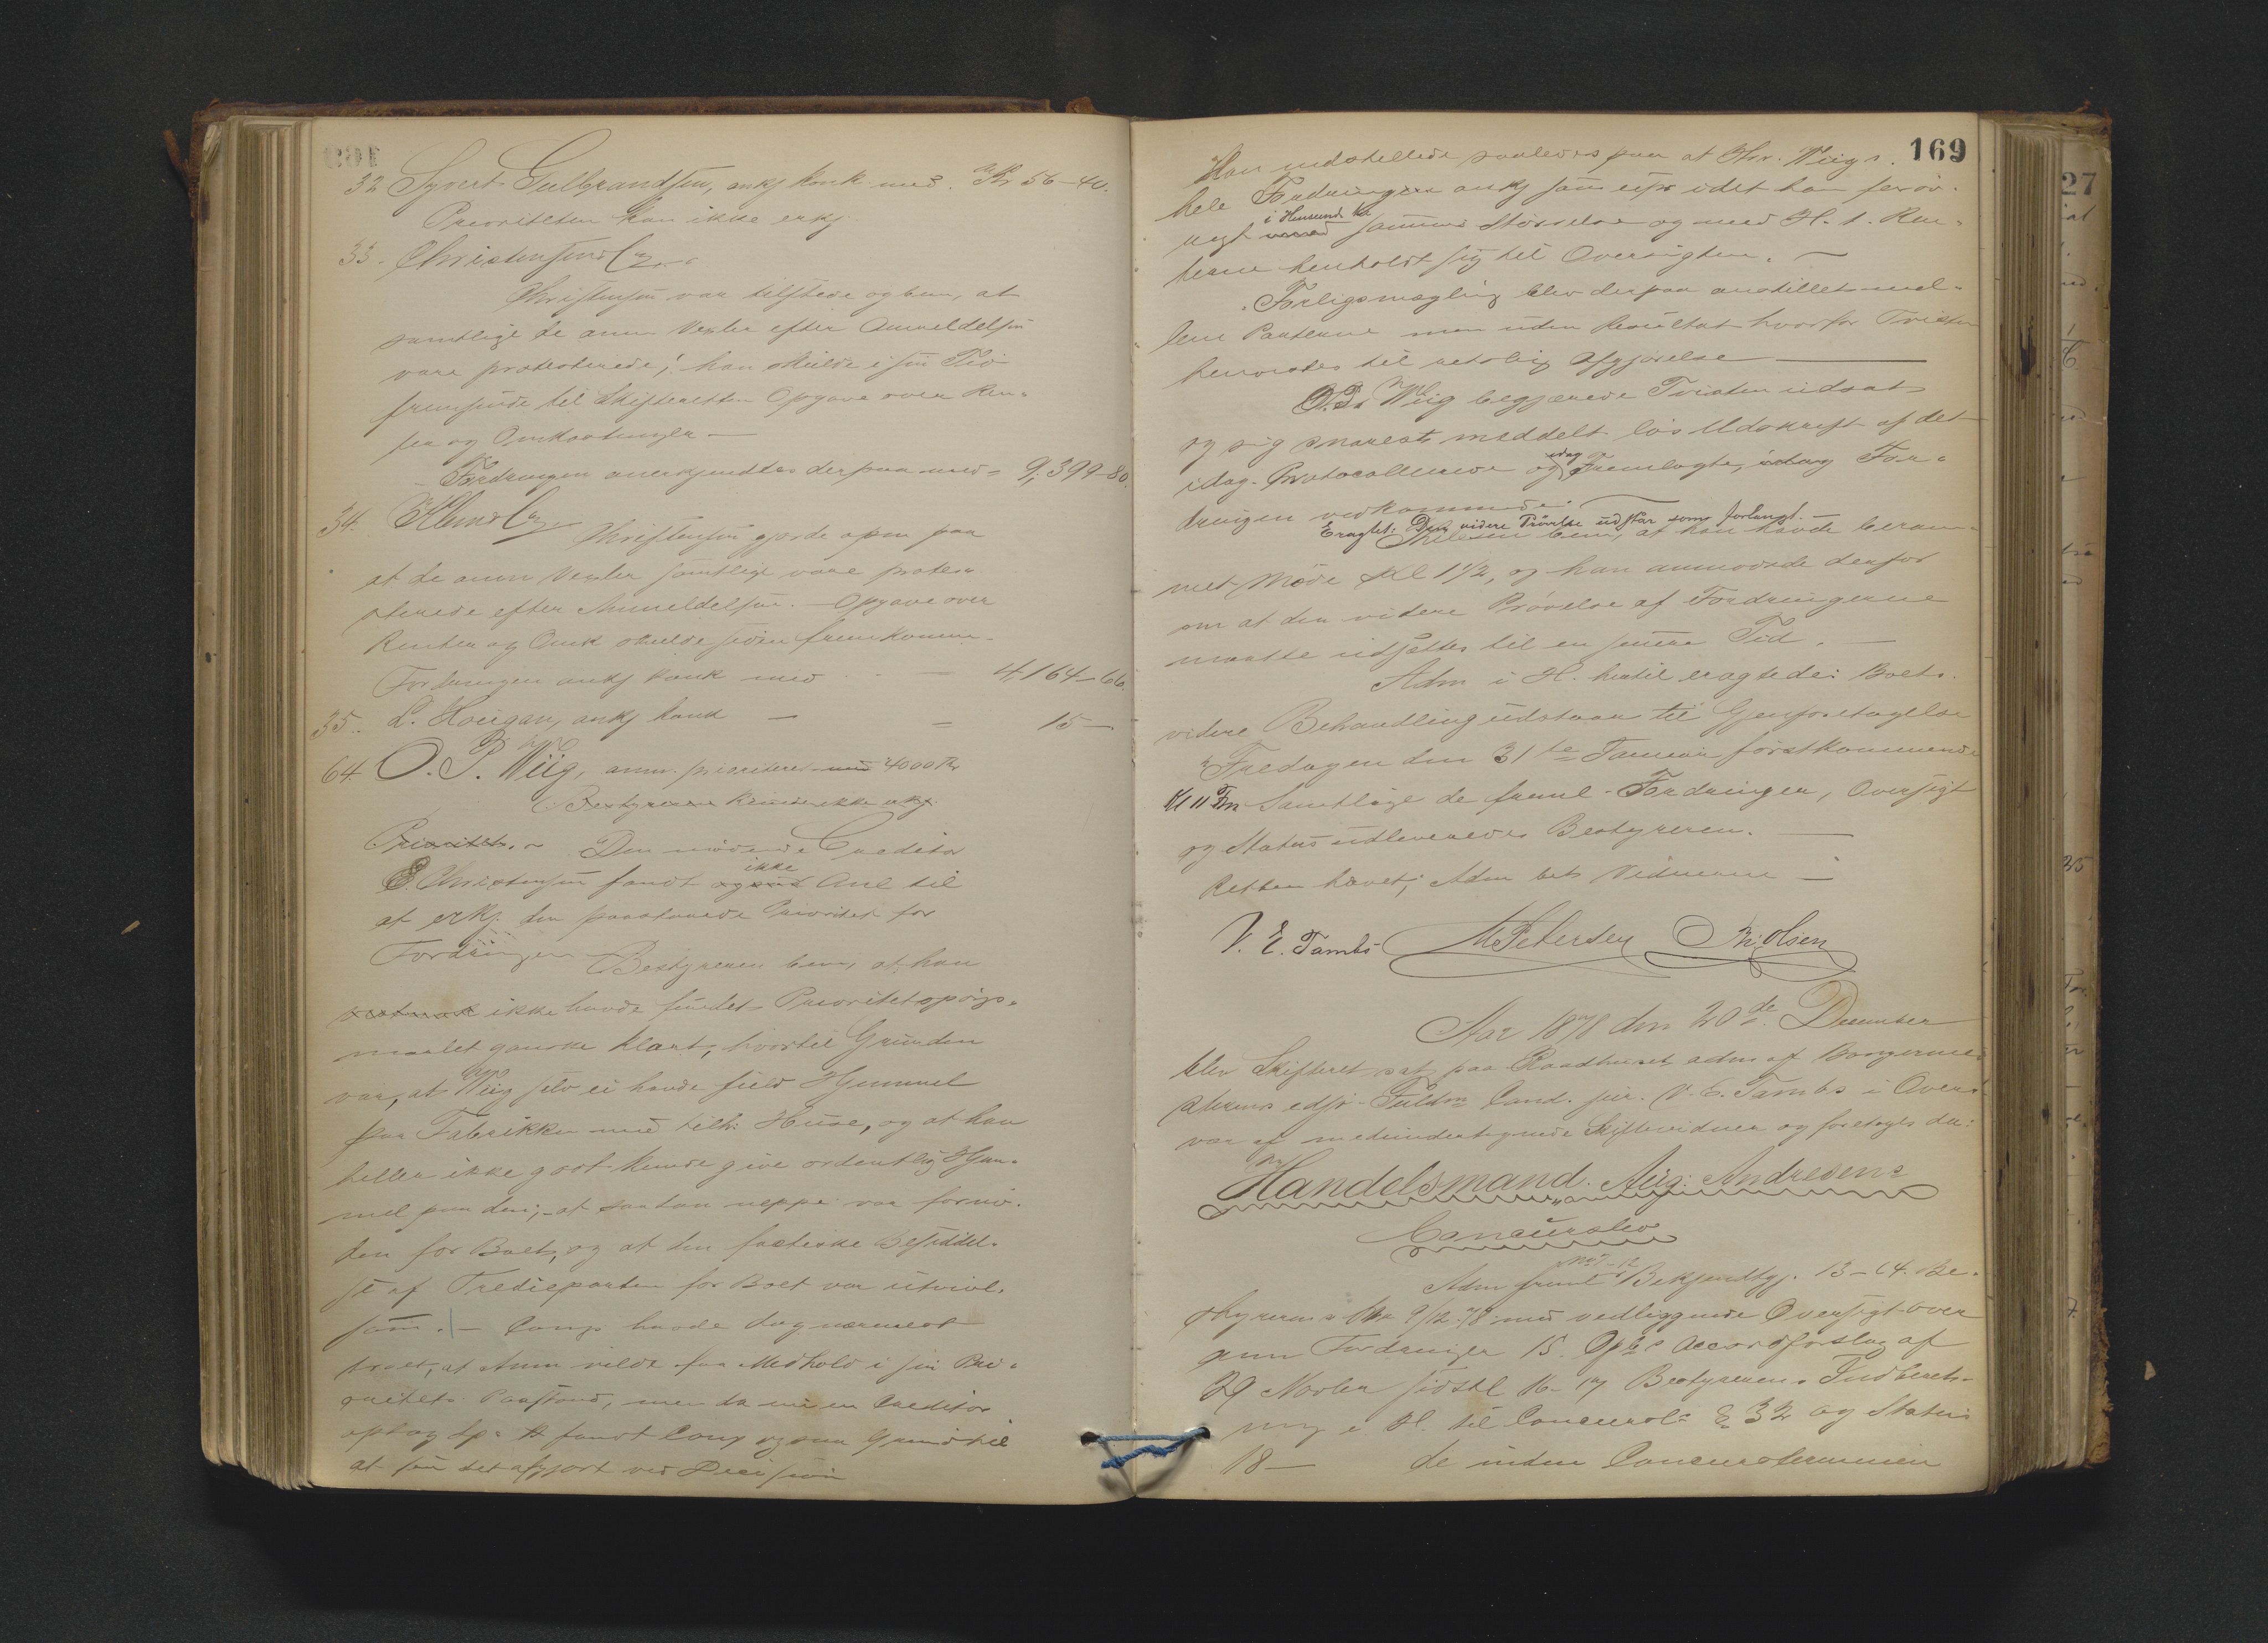 32 Syvert Gulbrandsen, ankj konk med. Kr 56-40.
Prioriteten kan ikke erkj.
33. Christensen & Co.
Christensen var tilstede og bem, at
samtlige de anm Vexler efter Anmeldelsen
vare protesterede; han skulde i sin Tid
fremsende til Skifteretten Opgave over Ren-
ter og Omkostninger —
Fordringen anerkjendtes derpaa med = 9,399-80.
34. Klem & Co. Christensen gjorde opm paa
at de anm Vexler samtlige vare prote-
sterede efter Anmeldelsen. — Opgave over
Renter og Omk skulde siden fremkomme —
Fordringen ankj konk med — 4,164-66.
35. L. Hougan, ankj konk — = 15 —
64. O. P. Wiig, anm. prioriteret med 4000 Kr
Bestyreren kunde ikke erkj.
Prioritet. — Den mødende Creditor
E. Christensen fandt ogsaa ikke Anl til
at erkj. den paastaaede Prioritet for
Fordringen Bestyreren bem, at han
ikke havde fundet Prioritetsspørgs-
maalet ganske klart, hvortil Grunden
var, at Wiig selv ei havde fuld Hjemmel
paa Fabrikken med tilh. Huse, og at han
heller ikke godt kunde give ordentlig Hjem-
mel paa den; at saadan neppe var fornø-
den for Boet, og at den factiske Besiddel-
se af Tredieparten for Boet var utvivl-
som. — Comp havde dog nærmest
troet, at Anm vilde faa Medhold i sin Pri-
oritets Paastand, men da nu en Creditor
optog Sp. fandt Comp ogsaa Grund til
at faa det afgjort ved Decision
169
Han indstillede saaledes paa at Hr. Wiigs
hele Fordringen ankj som idet han forøv-
rigt i Henseende til sammes Størrelse og med H. t. Ren-
terne henholdt sig til Oversigten. —
Forligsmægling blev derpaa anstillet mel-
lem Parterne men uden Resultat hvorfor Tvisten
henvistes til retslig Afgjørelse —
O. P. Wiig begjærede Tvisten udsat
og sig snarest meddelt løs Udskrift af det
idag Protocollerede og idag Fremlagte, idag For-
dringen vedkommende.
Eragtet: Den videre Prøvelse udstaar som forlangt. —
bem, at han havde beram-
met Møde Kl 1½, og han anmodede derfor
om at den videre Prøvelse af Fordringerne
maatte udsættes til en senere Tid. —
Adm i H. hertil eragtede: Boets
videre Behandling udstaar til Gjenforetagelse
Fredagen den 31te Januar førstkommende
Kl 11 Fm Samtlige de freml. Fordringer, Oversigt
og Status udleveredes Bestyreren. —
Retten hævet; Adm bet. Vidnerne —
V. E. Tambs M Petersen Olsen
Aar 1878 den 20de December
blev Skifteret sat paa Raadhuset adm af Borgerme-
sterens edsv. Fuldm Cand. jur. V. E. Tambs i Over-
vær af medundertegnede Skiftevidner og foretoges da:
Handelsmand Aug. Andresens
Concursbo
Adm freml No 1-12 Bekjendtgj. 13-14 Be-
styrerens 9/12 78 med vedliggende Oversigt over
anm Fordringer 15. Opbs Accordforslag af
29 Novber sidstl 16-17 Bestyrerens Indberet-
ning i H. til Concursl. § 32 og Status
18 — de inden Concursterminen